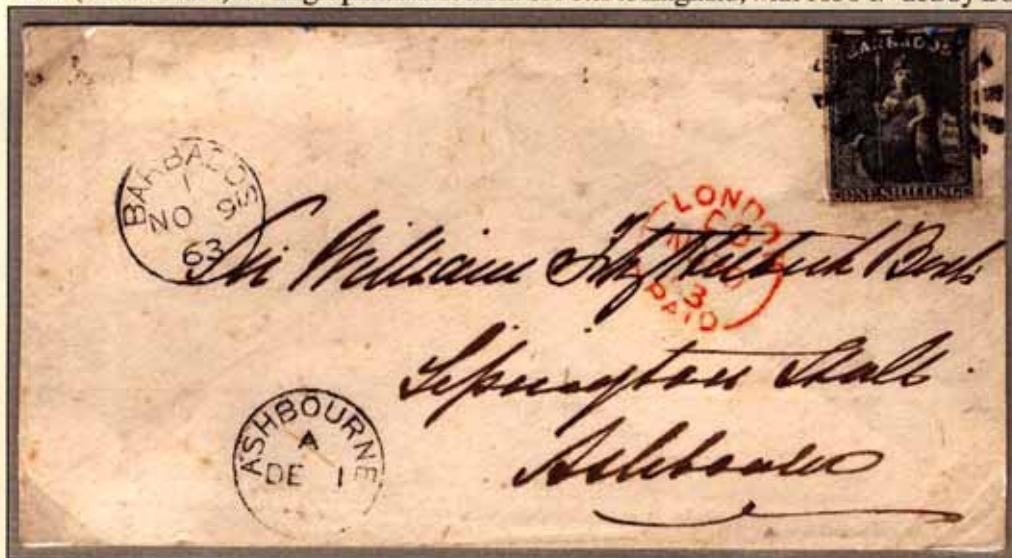 BARBADOS
ONE SHILLING
BARBADOS
1
NO 9
63
LONDON
PAID
Sir William FitzHerbert Bart
Tissington Hall
Ashbourne
ASHBOURNE
A
DE 1